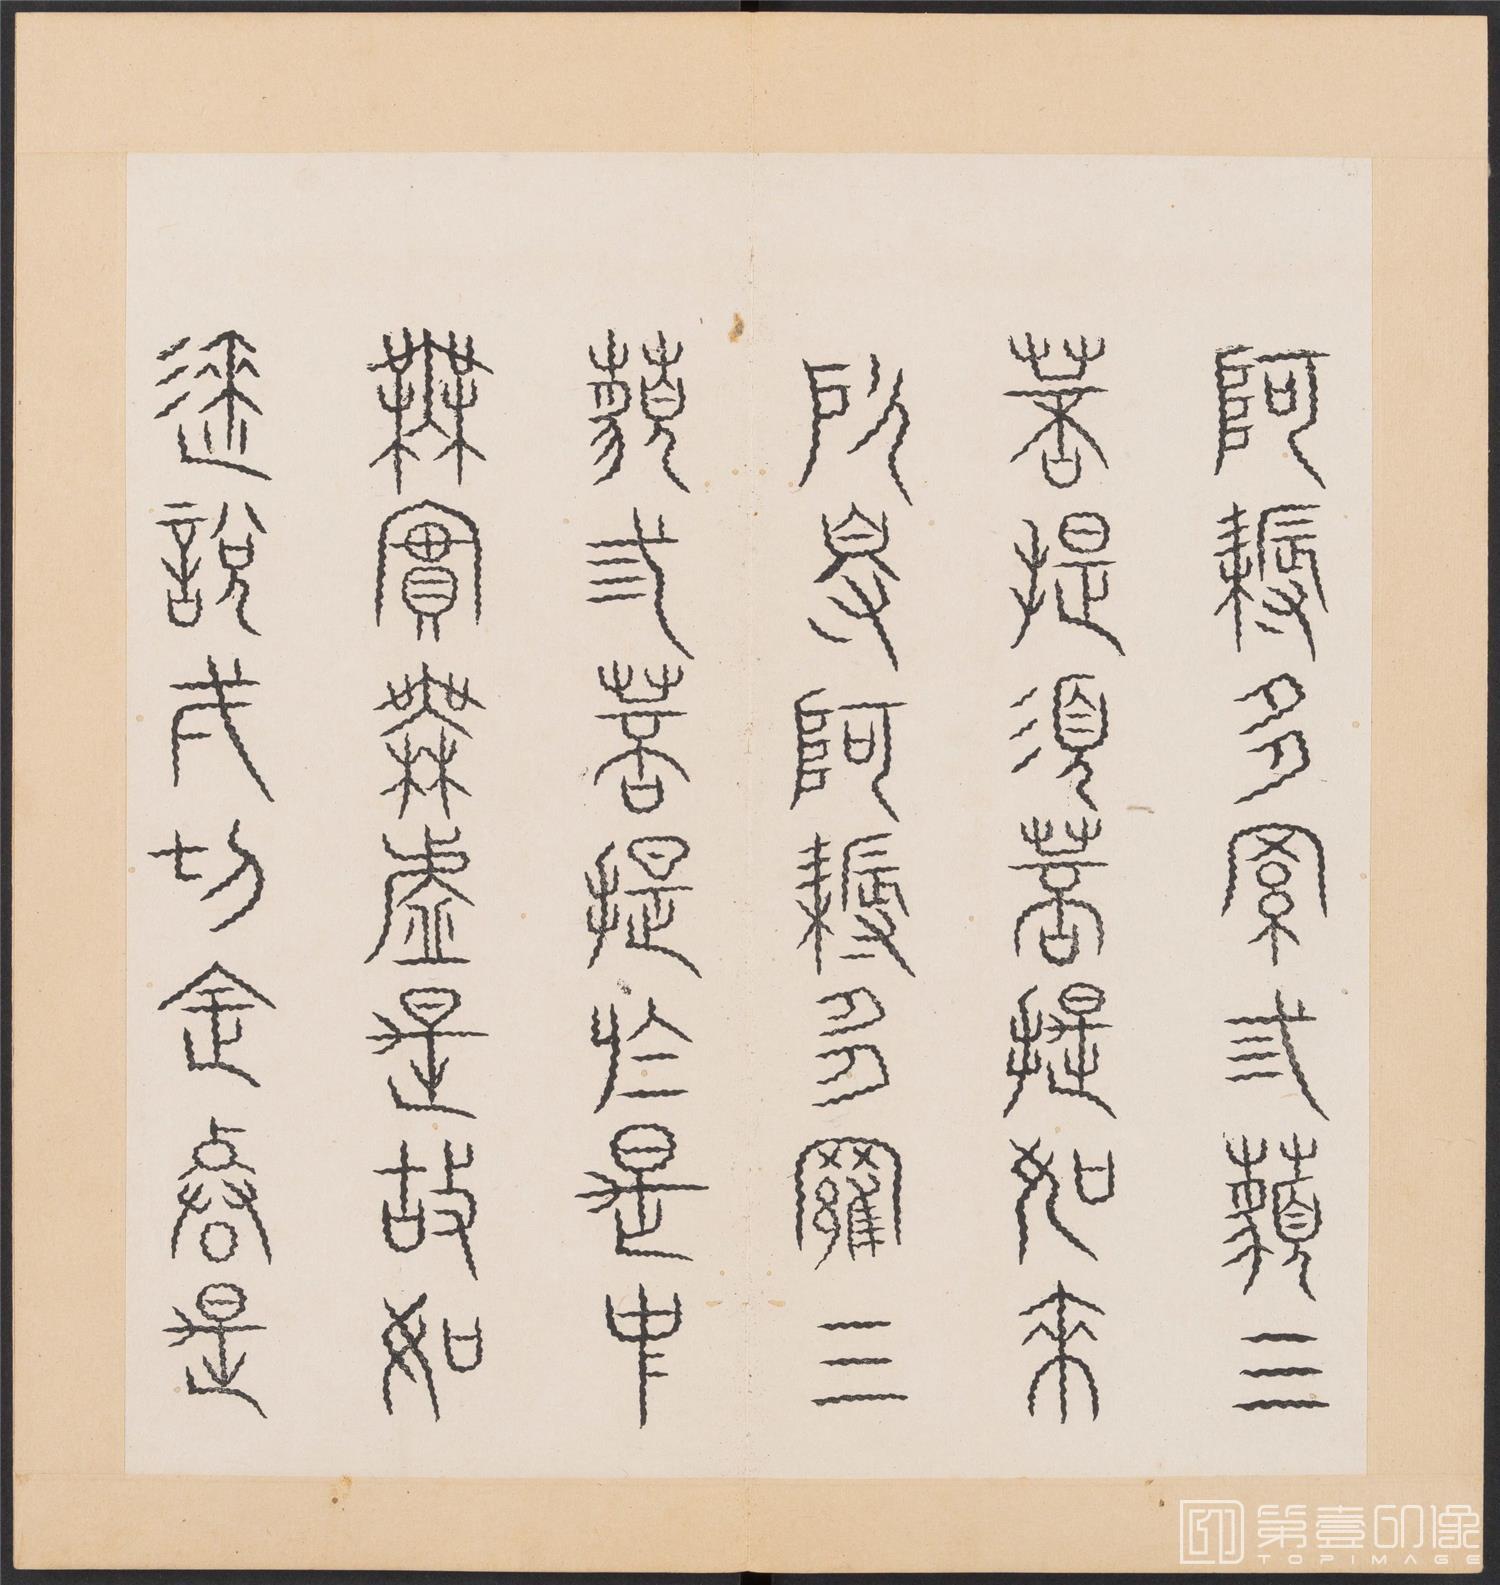 阿耨多羅弎藐三
菩提須菩提如來
所得阿耨多羅三
藐弎菩提於是中
無實無虛是故如
來說弌切法皆是
第壹印像
TOPIMAGE